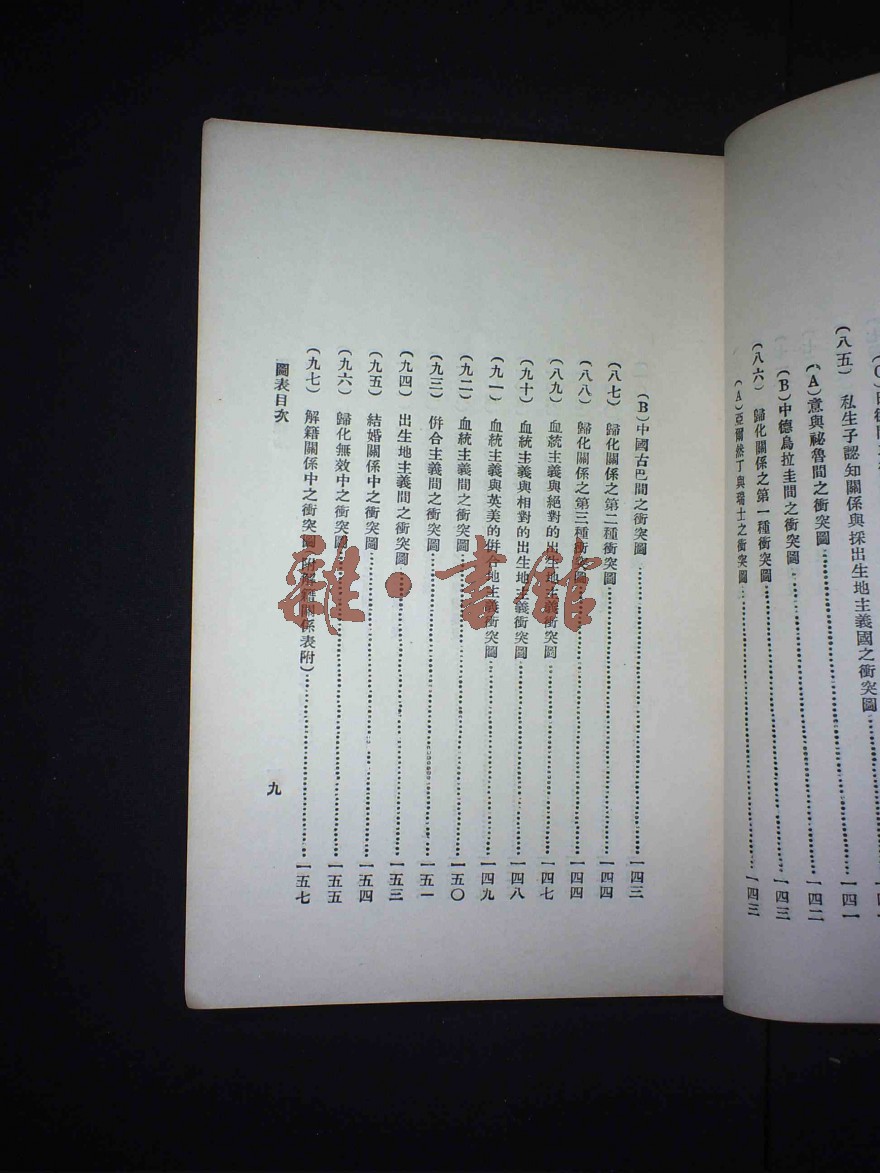 (八五) 私生子認知關係與採出生地主義國之衝突圖……一四一
(A)意與祕魯間之衝突圖……一四二
(B)中德烏拉圭間之衝突圖……一四三
(八六) 歸化關係之第一種衝突圖……一四三
(A)亞爾然丁與瑞士之衝突圖……
(B)中國古巴間之衝突圖……一四三
(八七) 歸化關係之第二種衝突圖……一四四
(八八) 歸化關係之第三種衝突圖……一四四
(八九) 血統主義與絕對的出生地主義衝突圖……一四七
(九十) 血統主義與相對的出生地主義衝突圖……一四八
(九一) 血統主義與英美的併合地主義衝突圖……一四九
(九二) 血統主義間之衝突圖……一五〇
(九三) 併合主義間之衝突圖……一五一
(九四) 出生地主義間之衝突圖……一五三
(九五) 結婚關係中之衝突圖……一五四
(九六) 歸化無效中之衝突圖……一五五
(九七) 解籍關係中之衝突圖(附解籍關係表附)……一五七
圖表目次 九
雜·書館